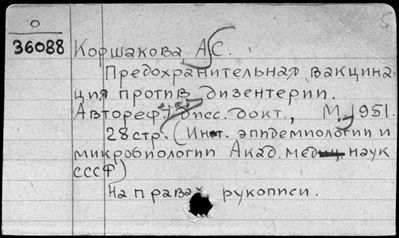 О
36088
Коршакова А.С.
Предохранительная вакцина-
ция против дизентерии.
Автореф. дисс. докт., М., 1951.
28 стр. (Инт. эпидемиологии и
микробиологии Акад. мед. наук
СССР)
На правах рукописи.